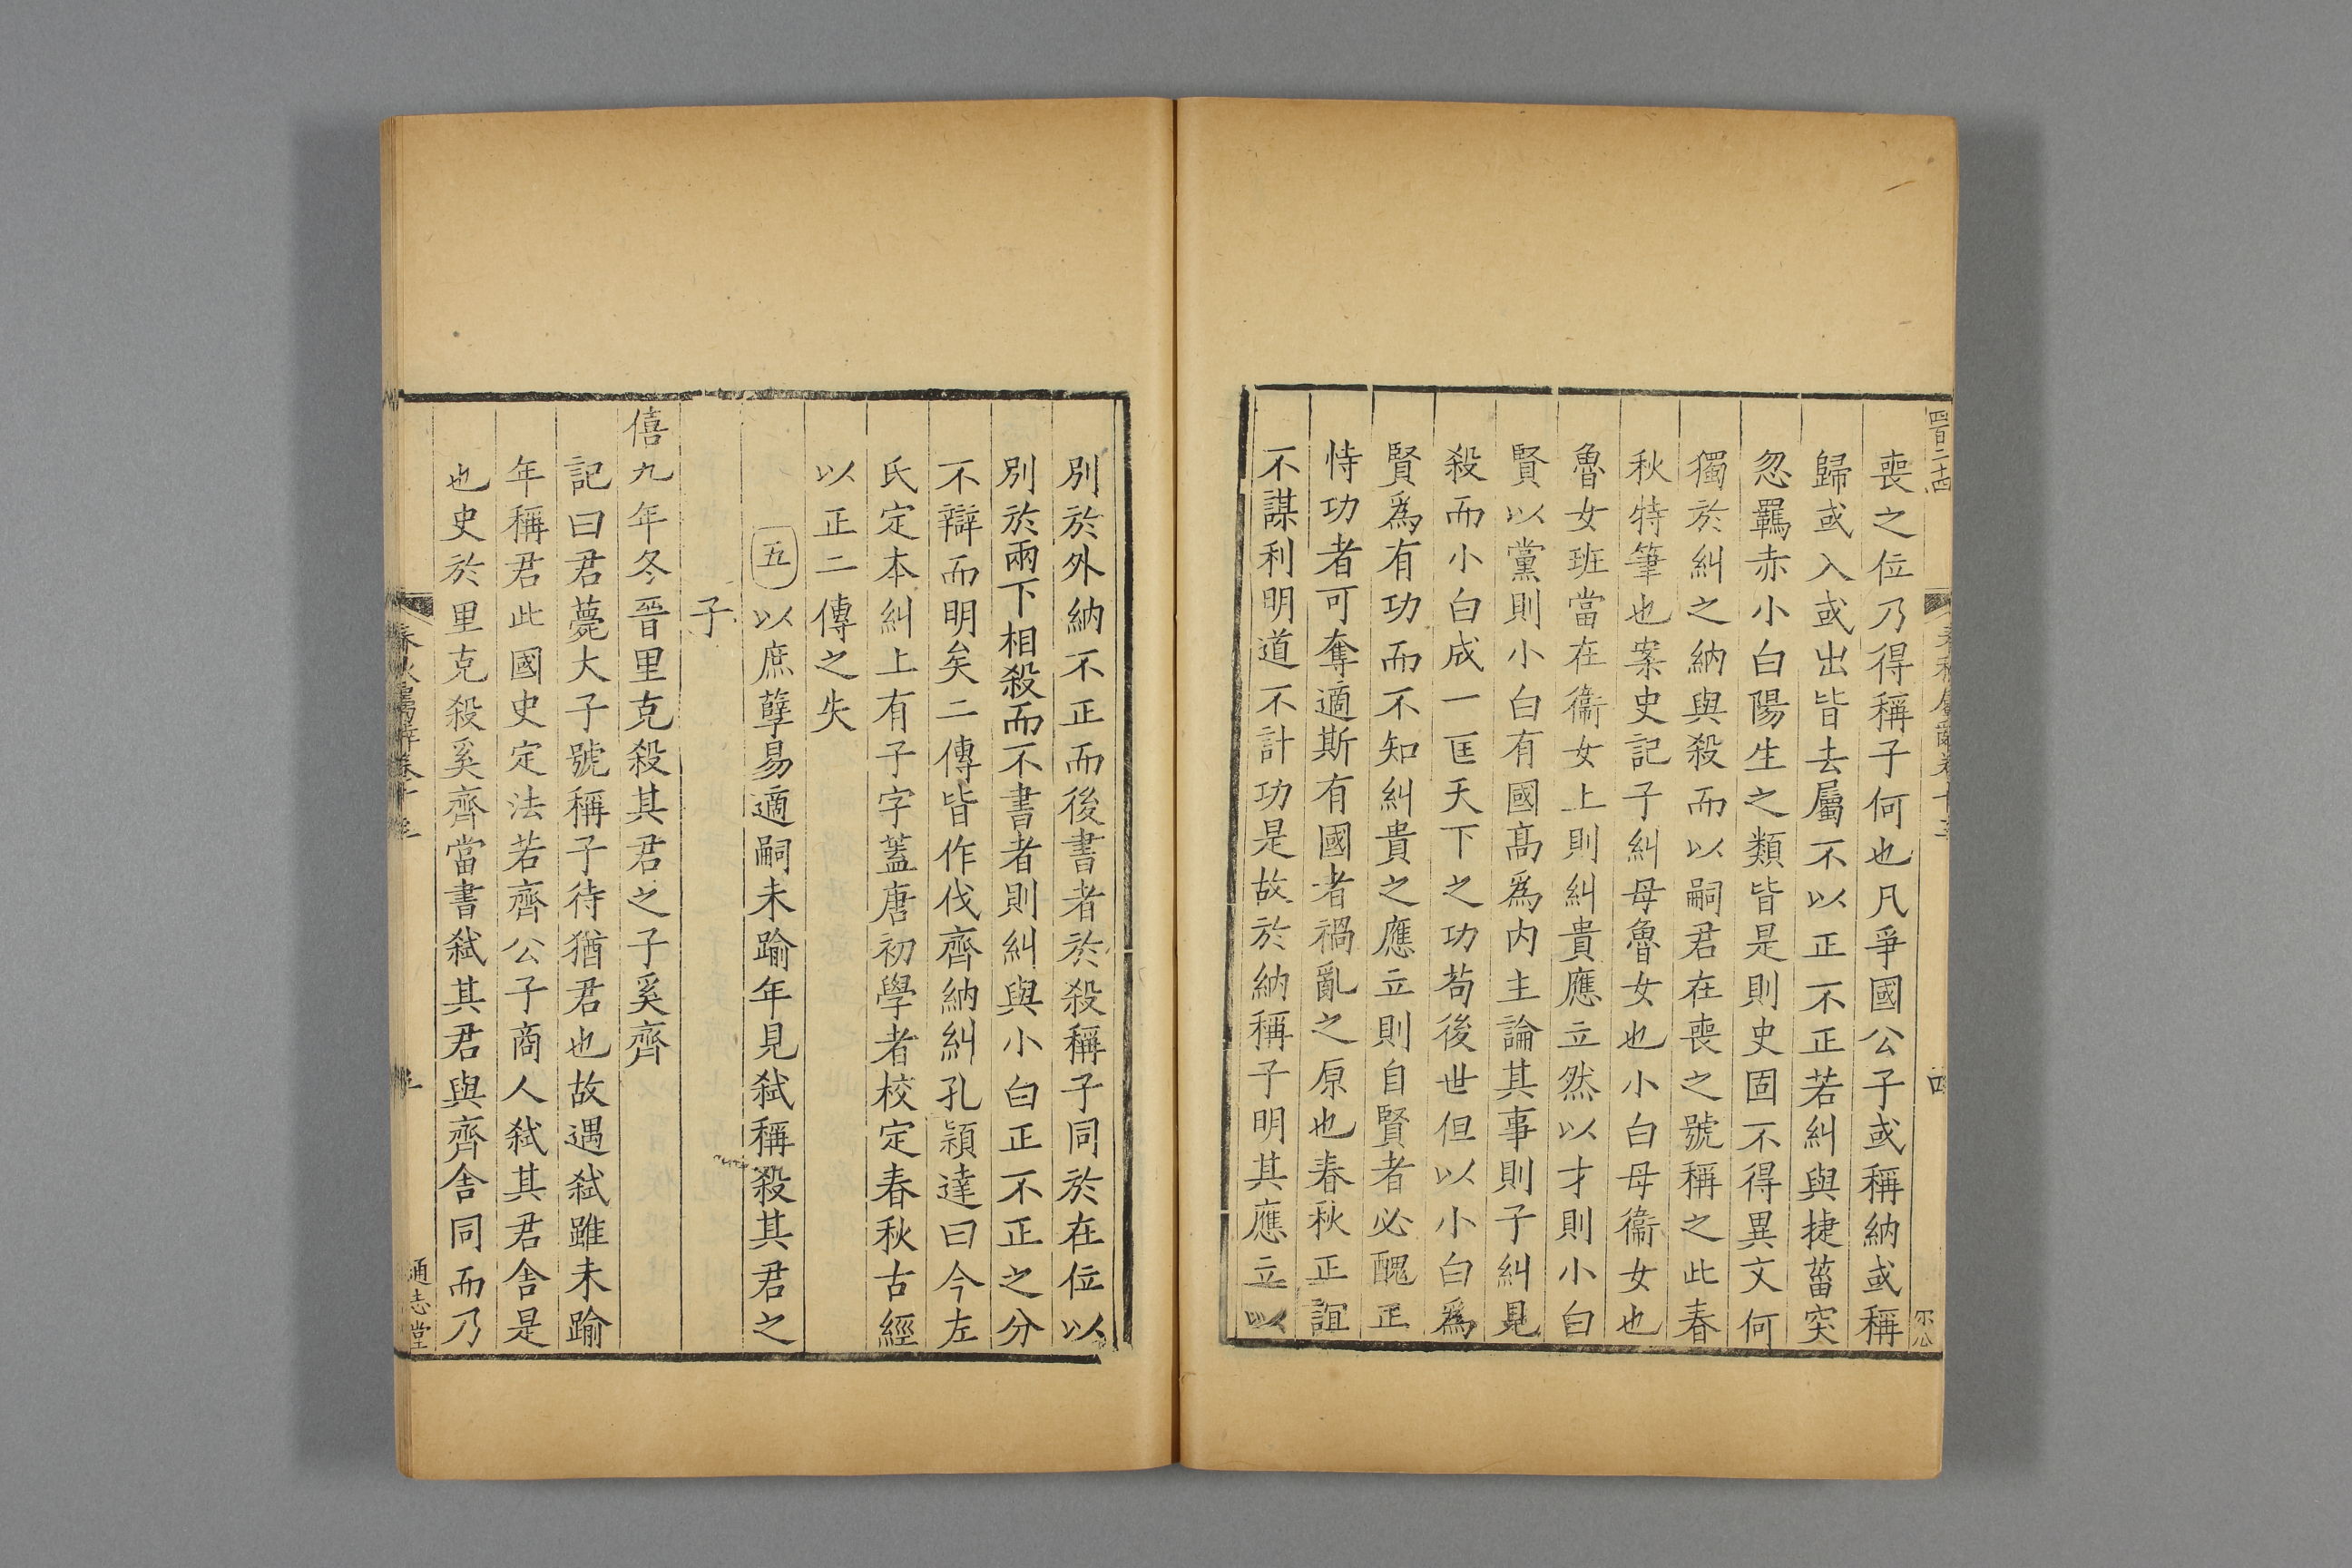 四百二十四
喪之位乃得稱子何也凡爭國公子或稱納或稱
歸或入或出皆去屬不以正不正若糾與捷菑突
忽羈赤小白陽生之類皆是則史固不得異文何
獨於糾之納與殺而以嗣君在喪之號稱之此春
秋特筆也案史記子糾母魯女也小白母衞女也
魯女班當在衞女上則糾貴應立然以才則小白
賢以黨則小白有國髙爲内主論其事則子糾見
殺而小白成一匡天下之功苟後世但以小白爲
賢爲有功而不知糾貴之應立則自賢者必醜正
恃功者可奪適斯有國者禍亂之原也春秋正誼
不謀利明道不計功是故於納稱子明其應立以
別於外納不正而後書者於殺稱子同於在位以
別於兩下相殺而不書者則糾與小白正不正之分
不辯而明矣二傳皆作伐齊納糾孔穎達曰今左
氏定本糾上有子字蓋唐初學者校定春秋古經
以正二傳之失
五以庶孽易適嗣未踰年見弑稱殺其君之
子
僖九年冬晉里克殺其君之子奚齊
記曰君薨大子號稱子待猶君也故遇弑雖未踰
年稱君此國史定法若齊公子商人弑其君舍是
也史於里克殺奚齊當書弑其君與齊舍同而乃
通志堂